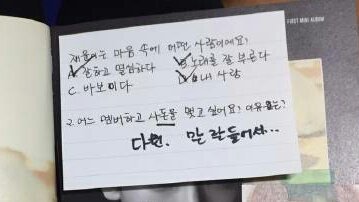 FIRST MINI ALBUM
재윤이는 마음 속에 어떤 사람이에요?
A. 잘하고 열심하다 B. 노래를 잘 부른다
C. 바보이다 D. 내 사람
2. 어느 멤버하고 사돈을 맺고 싶어요? 이유는?
다원. 말 잘 들어서...